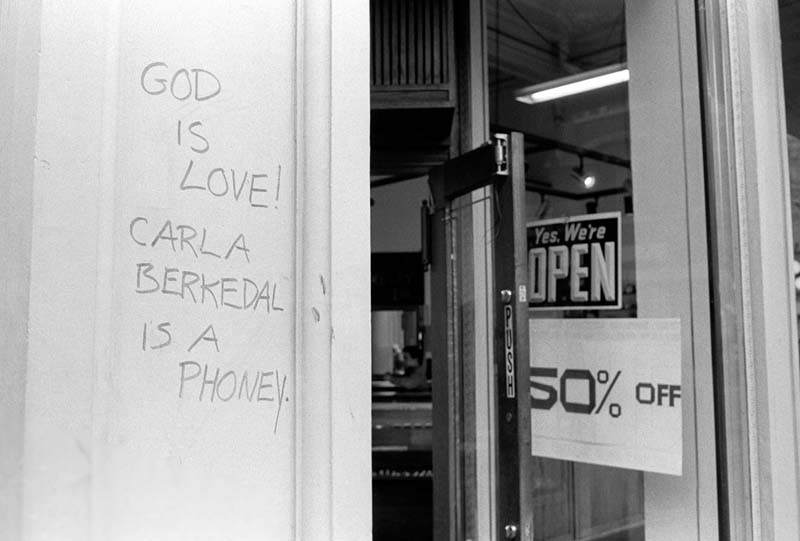 GOD
IS
LOVE!
CARLA
BERKEDAL
IS A
PHONEY.
Yes, We're
OPEN
PUSH
50% OFF